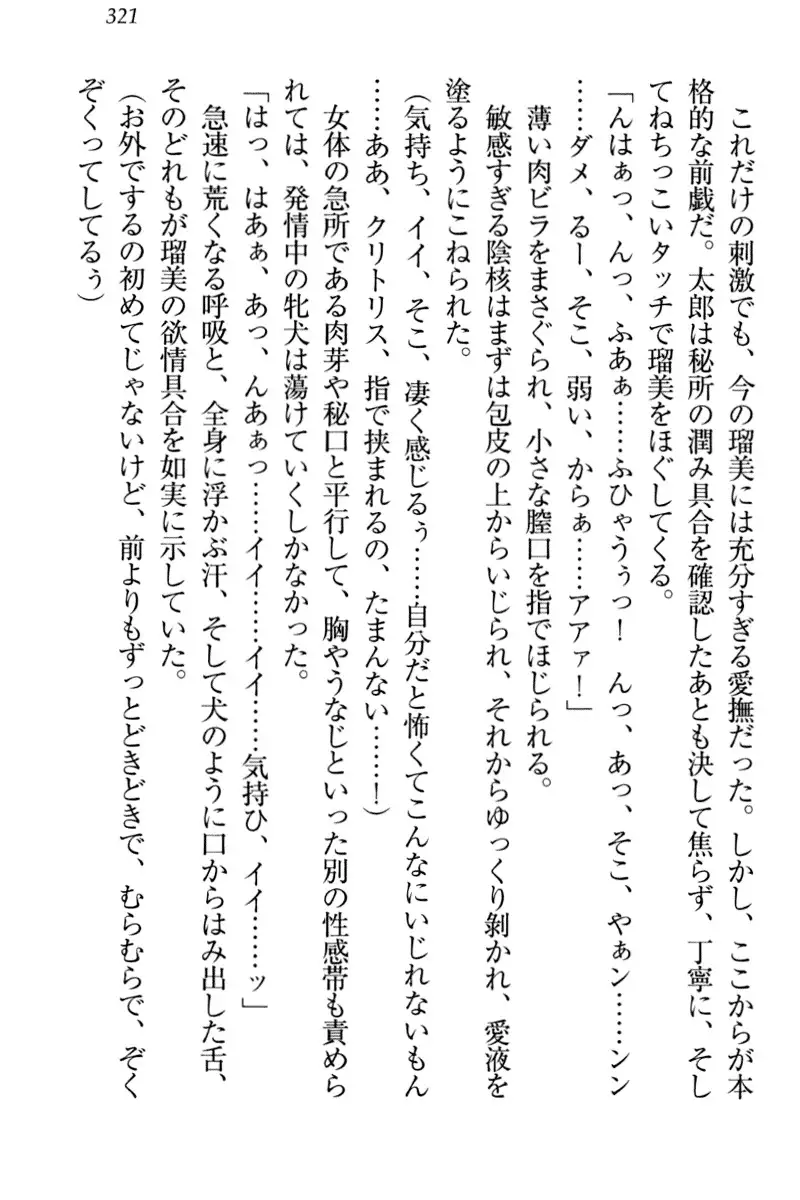 321
これだけの刺激でも、今の瑠美には充分すぎる愛撫だった。しかし、ここからが本
格的な前戯だ。太郎は秘所の潤み具合を確認したあとも決して焦らず、丁寧に、そし
てねちっこいタッチで瑠美をほぐしてくる。
「んはぁっ、んっ、ふあぁ……ふひゃうぅっ！　んっ、あっ、そこ、やぁン……ンン
……ダメ、るー、そこ、弱い、からぁ……アアァ！」
薄い肉ビラをまさぐられ、小さな膣口を指でほじられる。
敏感すぎる陰核はまずは包皮の上からいじられ、それからゆっくり剝かれ、愛液を
塗るようにこねられた。
（気持ち、イイ、そこ、凄く感じるぅ……自分だと怖くてこんなにいじれないもん
……ああ、クリトリス、指で挟まれるの、たまんない……！）
女体の急所である肉芽や秘口と平行して、胸やうなじといった別の性感帯も責めら
れては、発情中の牝犬は蕩けていくしかなかった。
「はっ、はあぁ、あっ、んあぁっ……イイ……イイ……気持ひ、イイ……ッ」
急速に荒くなる呼吸と、全身に浮かぶ汗、そして犬のように口からはみ出した舌、
そのどれもが瑠美の欲情具合を如実に示していた。
（お外でするの初めてじゃないけど、前よりもずっとどきどきで、むらむらで、ぞく
ぞくってしてるぅ）